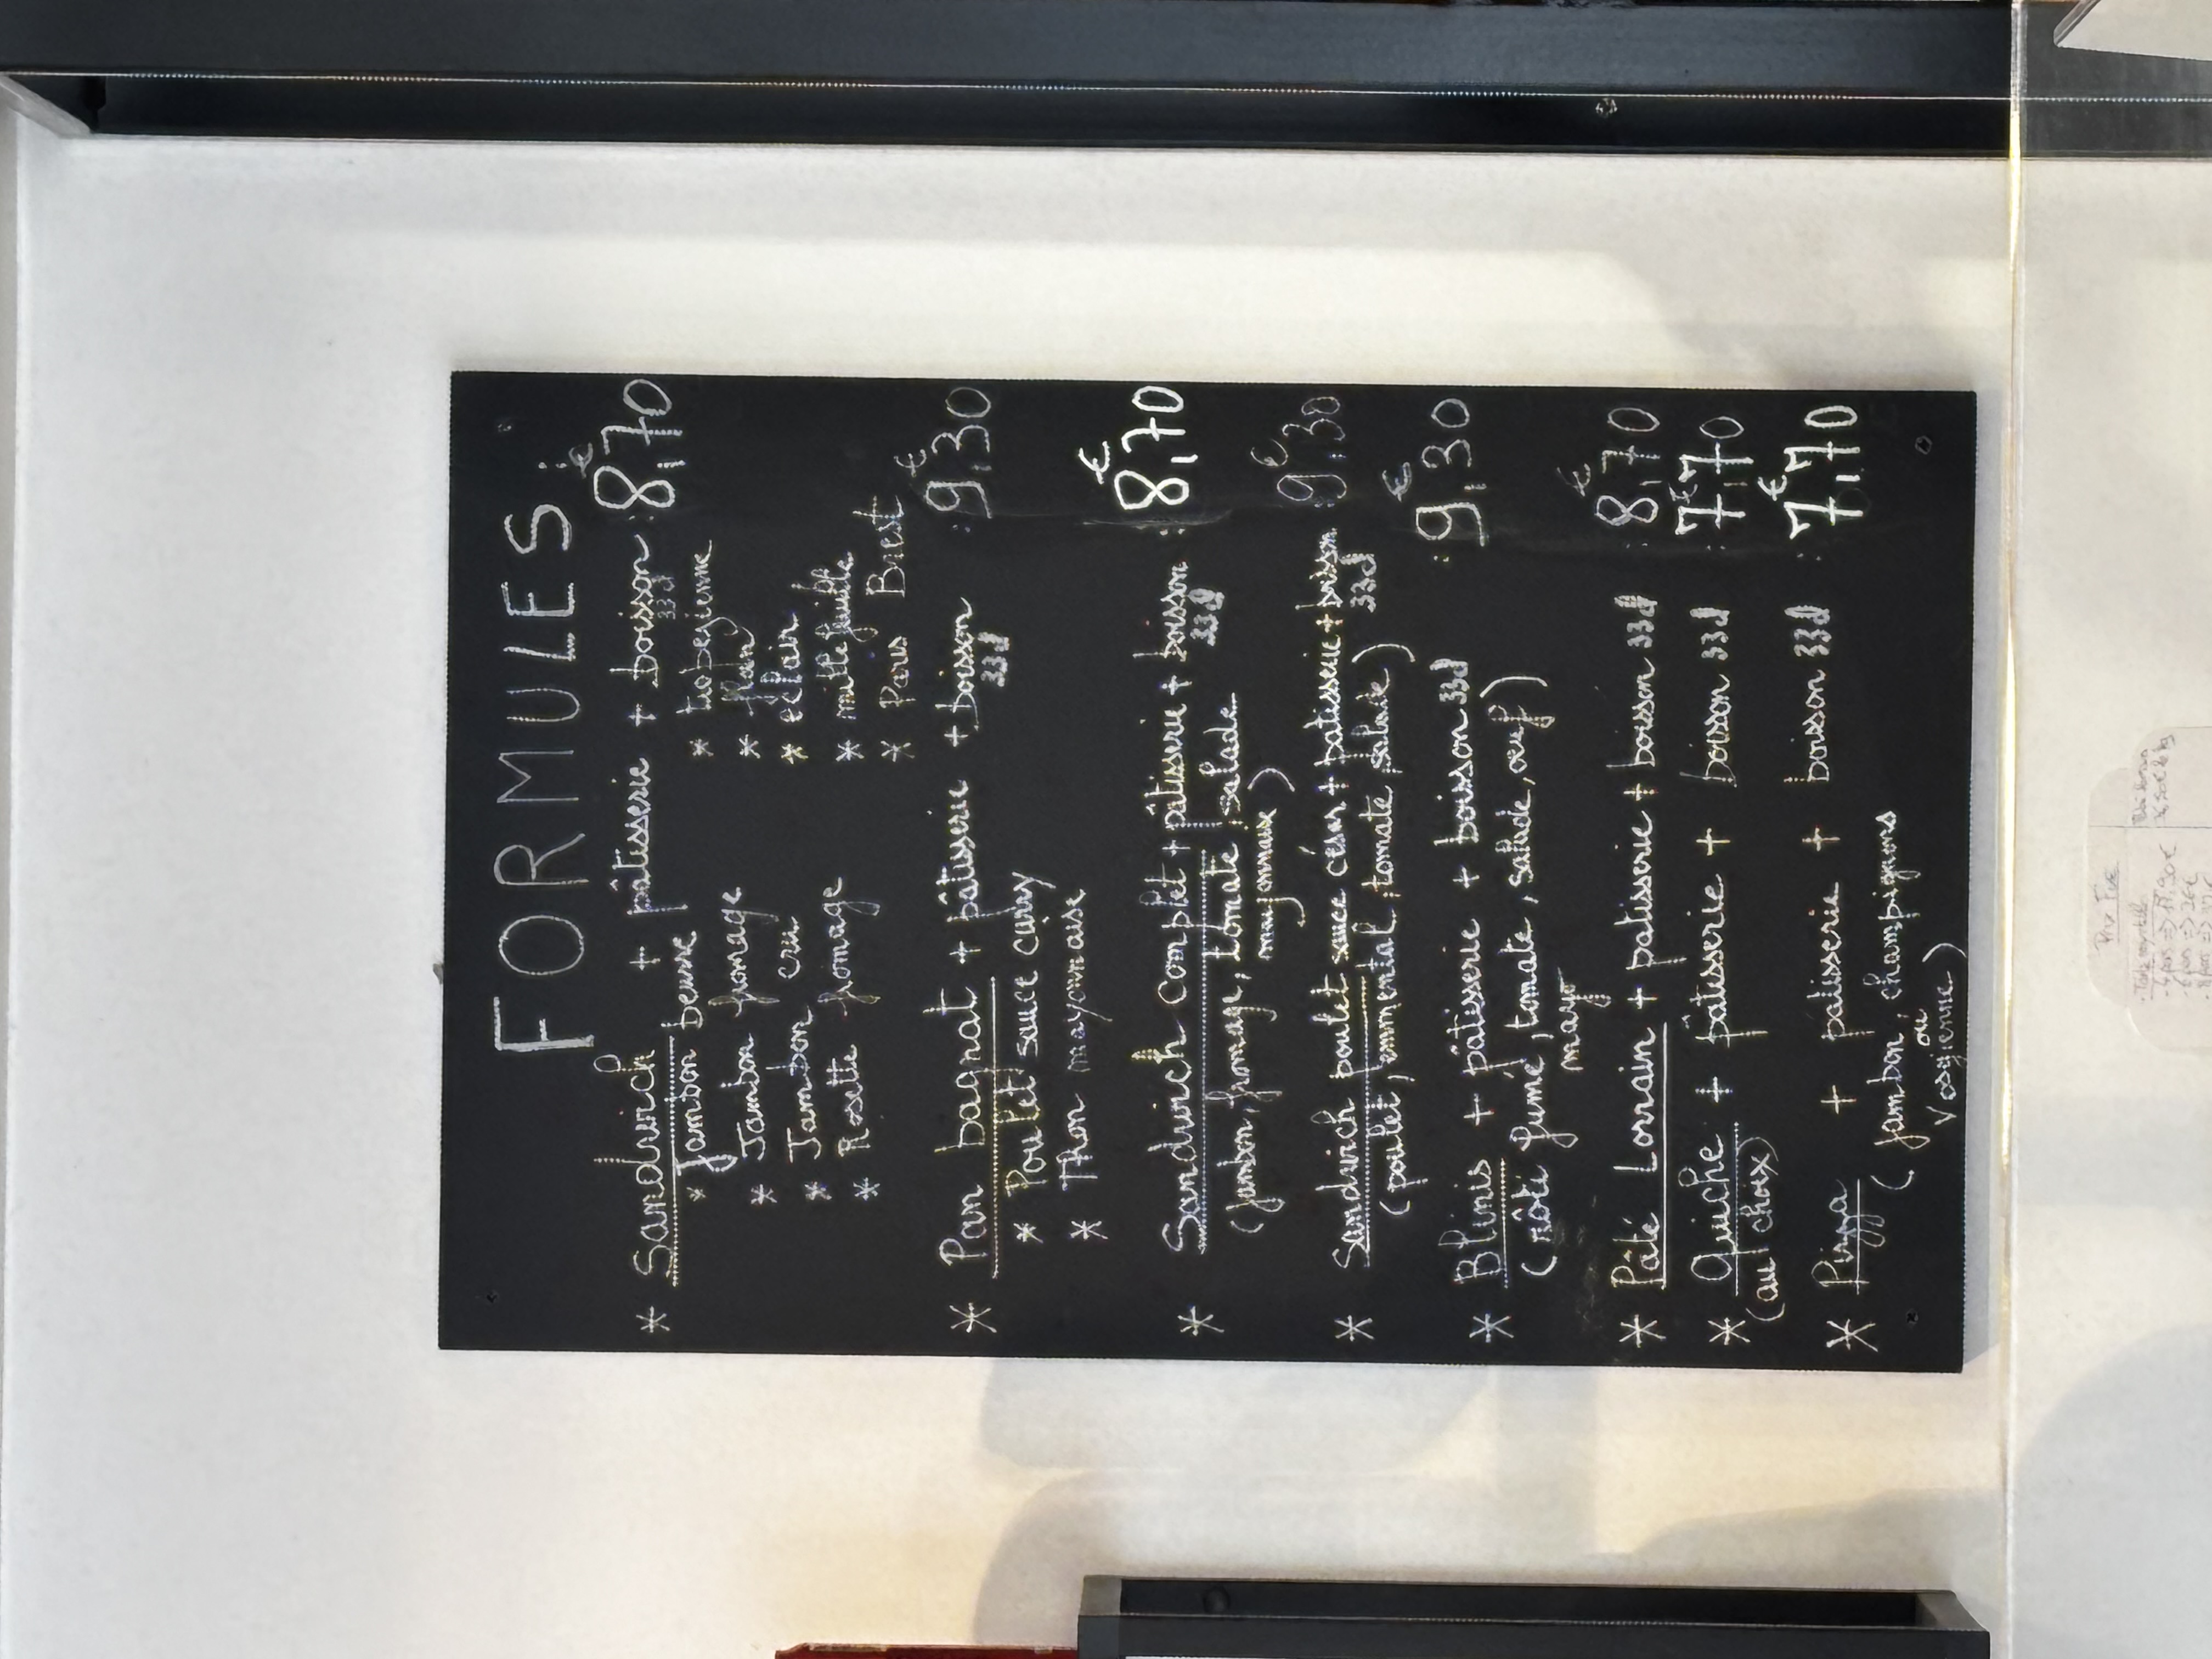 FORMULES :
* Sandwich + pâtisserie + boisson : 8,70 €
33cl
* Jambon beurre
* Jambon fromage
* Jambon cru
* Rosette fromage
* tropezienne
* flan
* éclair
* mille feuille
* Paris Brest
* Pan bagnat + pâtisserie + boisson : 9,30 €
33cl
* Poulet sauce curry
* Thon mayonnaise
* Sandwich complet + pâtisserie + boisson : 8,70 €
33cl
(Jambon, fromage, tomate, salade
mayonnaise)
* Sandwich poulet sauce césar + patisserie + boisson 9,30 €
33cl
(poulet, emmental, tomate, salade)
* Blinis + pâtisserie + boisson 33cl : 9,30 €
(rôti fumé, tomate, salade, oeuf)
mayo
* Pâté Lorrain + patisserie + boisson 33cl : 8,70 €
* Quiche + pâtisserie + boisson 33cl : 7,70 €
(au choix)
* Pizza + patisserie + boisson 33cl : 7,70 €
(jambon, champignons
ou
Vosgienne)